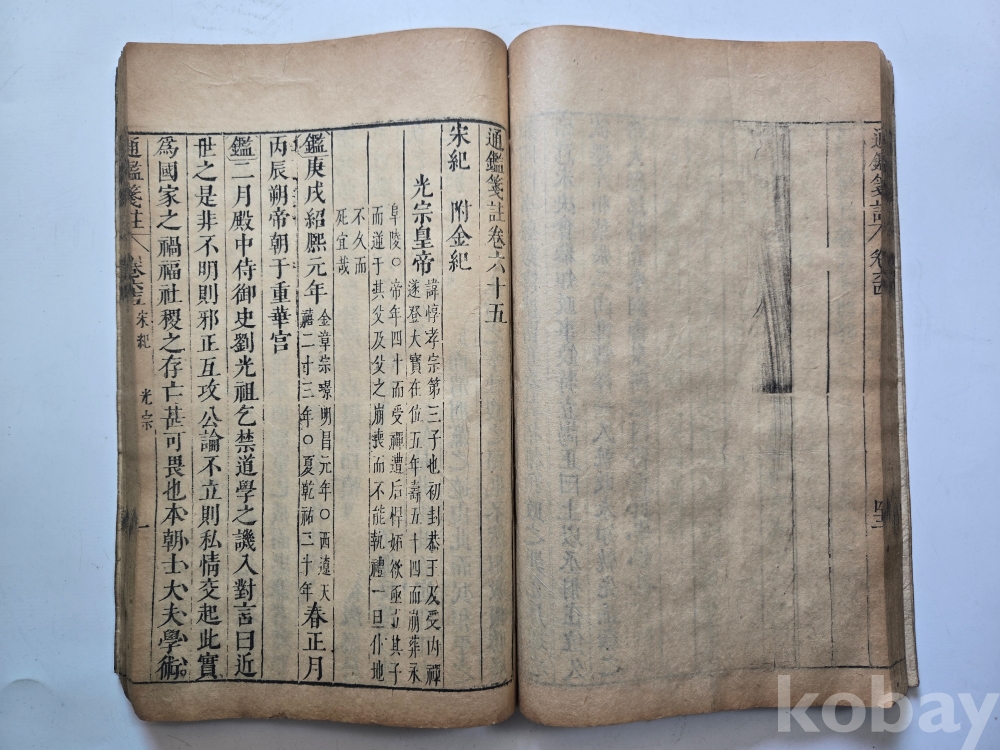 通鑑箋註
通鑑箋註卷六十五
宋紀 附金紀
光宗皇帝 諱惇孝宗第三子也初封恭王及受內禪
遂登大寶在位五年壽五十四而崩葬永
皇陵〇帝年四十而受禪遭后悍妬欲亟立其子
而遂于其父及父之崩喪而不能執禮一旦仆地
不久而
死宜哉
鑑庚戌紹熈元年 金章宗璟明昌元年〇西遼天
禧二十三年〇夏乾祐二十年 春正月
丙辰朔帝朝于重華宮
鑑二月殿中侍御史劉光祖乞禁道學之譏入對言曰近
世之是非不明則邪正互攻公論不立則私情交起此實
爲國家之禍福社稷之存亡甚可畏也本朝士大夫學術
通鑑箋註 宋紀 光宗 一
kobay